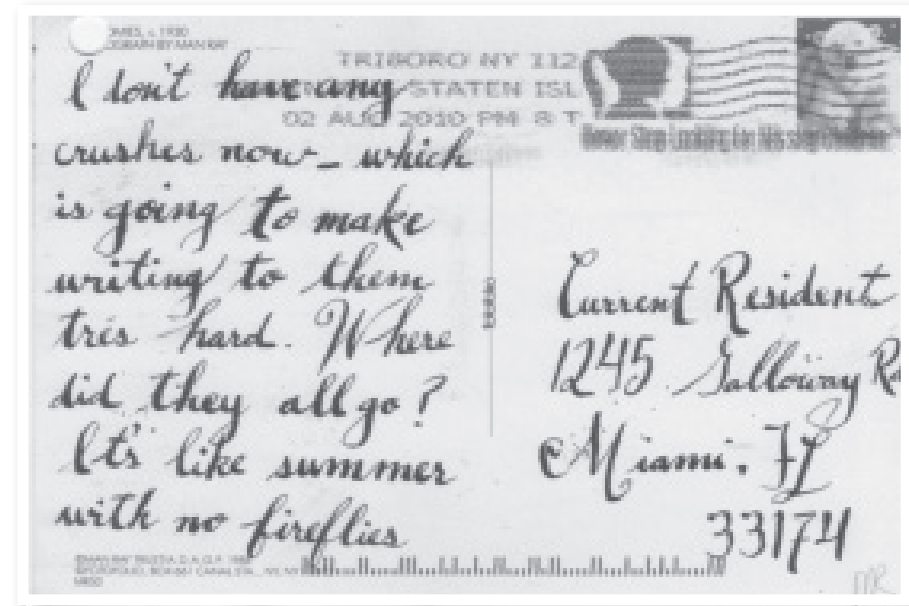 c. 1930
BY MAN RAY
TRIBORO NY 112
STATEN ISL
02 AUG 2010 PM 8 T
I don't have any
crushes now - which
is going to make
writing to them
très hard. Where
did they all go?
It's like summer
with no fireflies
Current Resident
1245 Galloway
Miami. FL
33174
MR